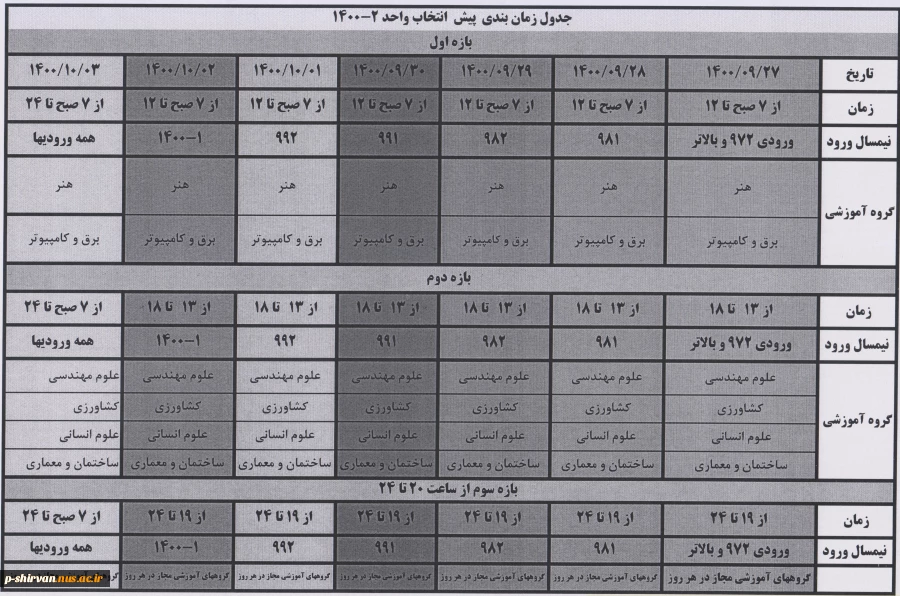 جدول زمان بندی پیش انتخاب واحد ۲-۱۴۰۰
بازه اول
تاریخ ۱۴۰۰/۰۹/۲۷ ۱۴۰۰/۰۹/۲۸ ۱۴۰۰/۰۹/۲۹ ۱۴۰۰/۰۹/۳۰ ۱۴۰۰/۱۰/۰۱ ۱۴۰۰/۱۰/۰۲ ۱۴۰۰/۱۰/۰۳
زمان از ۷ صبح تا ۱۲ از ۷ صبح تا ۱۲ از ۷ صبح تا ۱۲ از ۷ صبح تا ۱۲ از ۷ صبح تا ۱۲ از ۷ صبح تا ۱۲ از ۷ صبح تا ۲۴
نیمسال ورود ورودی ۹۷۲ و بالاتر ۹۸۱ ۹۸۲ ۹۹۱ ۹۹۲ ۱-۱۴۰۰ همه ورودیها
گروه آموزشی
هنر هنر هنر هنر هنر هنر هنر
برق و کامپیوتر برق و کامپیوتر برق و کامپیوتر برق و کامپیوتر برق و کامپیوتر برق و کامپیوتر برق و کامپیوتر
بازه دوم
زمان از ۱۳ تا ۱۸ از ۱۳ تا ۱۸ از ۱۳ تا ۱۸ از ۱۳ تا ۱۸ از ۱۳ تا ۱۸ از ۱۳ تا ۱۸ از ۷ صبح تا ۲۴
نیمسال ورود ورودی ۹۷۲ و بالاتر ۹۸۱ ۹۸۲ ۹۹۱ ۹۹۲ ۱-۱۴۰۰ همه ورودیها
گروه آموزشی
علوم مهندسی علوم مهندسی علوم مهندسی علوم مهندسی علوم مهندسی علوم مهندسی علوم مهندسی
کشاورزی کشاورزی کشاورزی کشاورزی کشاورزی کشاورزی کشاورزی
علوم انسانی علوم انسانی علوم انسانی علوم انسانی علوم انسانی علوم انسانی علوم انسانی
ساختمان و معماری ساختمان و معماری ساختمان و معماری ساختمان و معماری ساختمان و معماری ساختمان و معماری ساختمان و معماری
بازه سوم از ساعت ۲۰ تا ۲۴
زمان از ۱۹ تا ۲۴ از ۱۹ تا ۲۴ از ۱۹ تا ۲۴ از ۱۹ تا ۲۴ از ۱۹ تا ۲۴ از ۱۹ تا ۲۴ از ۷ صبح تا ۲۴
نیمسال ورود ورودی ۹۷۲ و بالاتر ۹۸۱ ۹۸۲ ۹۹۱ ۹۹۲ ۱-۱۴۰۰ همه ورودیها
گروههای آموزشی مجاز در هر روز گروههای آموزشی مجاز در هر روز گروههای آموزشی مجاز در هر روز گروههای آموزشی مجاز در هر روز گروههای آموزشی مجاز در هر روز گروههای آموزشی مجاز در هر روز
p-shirvan.nus.ac.ir